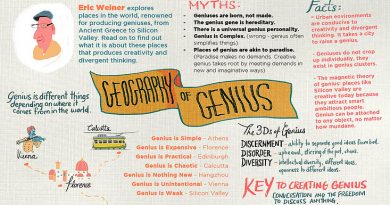 Eric Weiner explores
places in the world, renowned
for producing geniuses, from
Ancient Greece to Silicon
Valley. Read on to find out
what it is about these places
that produces creativity and
divergent thinking.
MYTHS:
• Geniuses are born, not made.
• The genius gene is hereditary.
• There is a universal genius personality.
• Genius is Complex. (wrong - genius often
simplifies things)
• Places of genius are akin to paradise.
(Paradise makes no demands. Creative
genius takes root by meeting demands in
new and imaginative ways)
Facts:
- Urban environments
are conducive to
creativity and divergent
thinking. It takes a city
to raise a genius.
- Geniuses do not crop
up individually, they
exist in genius clusters.
- The magnetic theory
of genius: places like
Silicon Valley are
creative today because
they attract smart
ambitious people.
Genius can be attached
to any object, no matter
how mundane.
GEOGRAPHY
OF
GENIUS
Genius is different things
depending on where it
comes from in the world.
Vienna
Calcutta
Florence
Genius is Simple - Athens
Genius is Expensive - Florence
Genius is Practical - Edinburgh
Genius is Chaotic - Calcutta
Genius is Nothing New - Hangzhou
Genius is Unintentional - Vienna
Genius is Weak - Silicon Valley
The 3Ds of Genius
DISCERNMENT - ability to separate good ideas from bad.
DISORDER - upheaval, stirring of the pot, chaos.
DIVERSITY - intellectual diversity, different ideas,
openness to different ideas.
KEY TO CREATING GENIUS
CONVERSATION AND THE FREEDOM
TO DISCUSS ANYTHING.